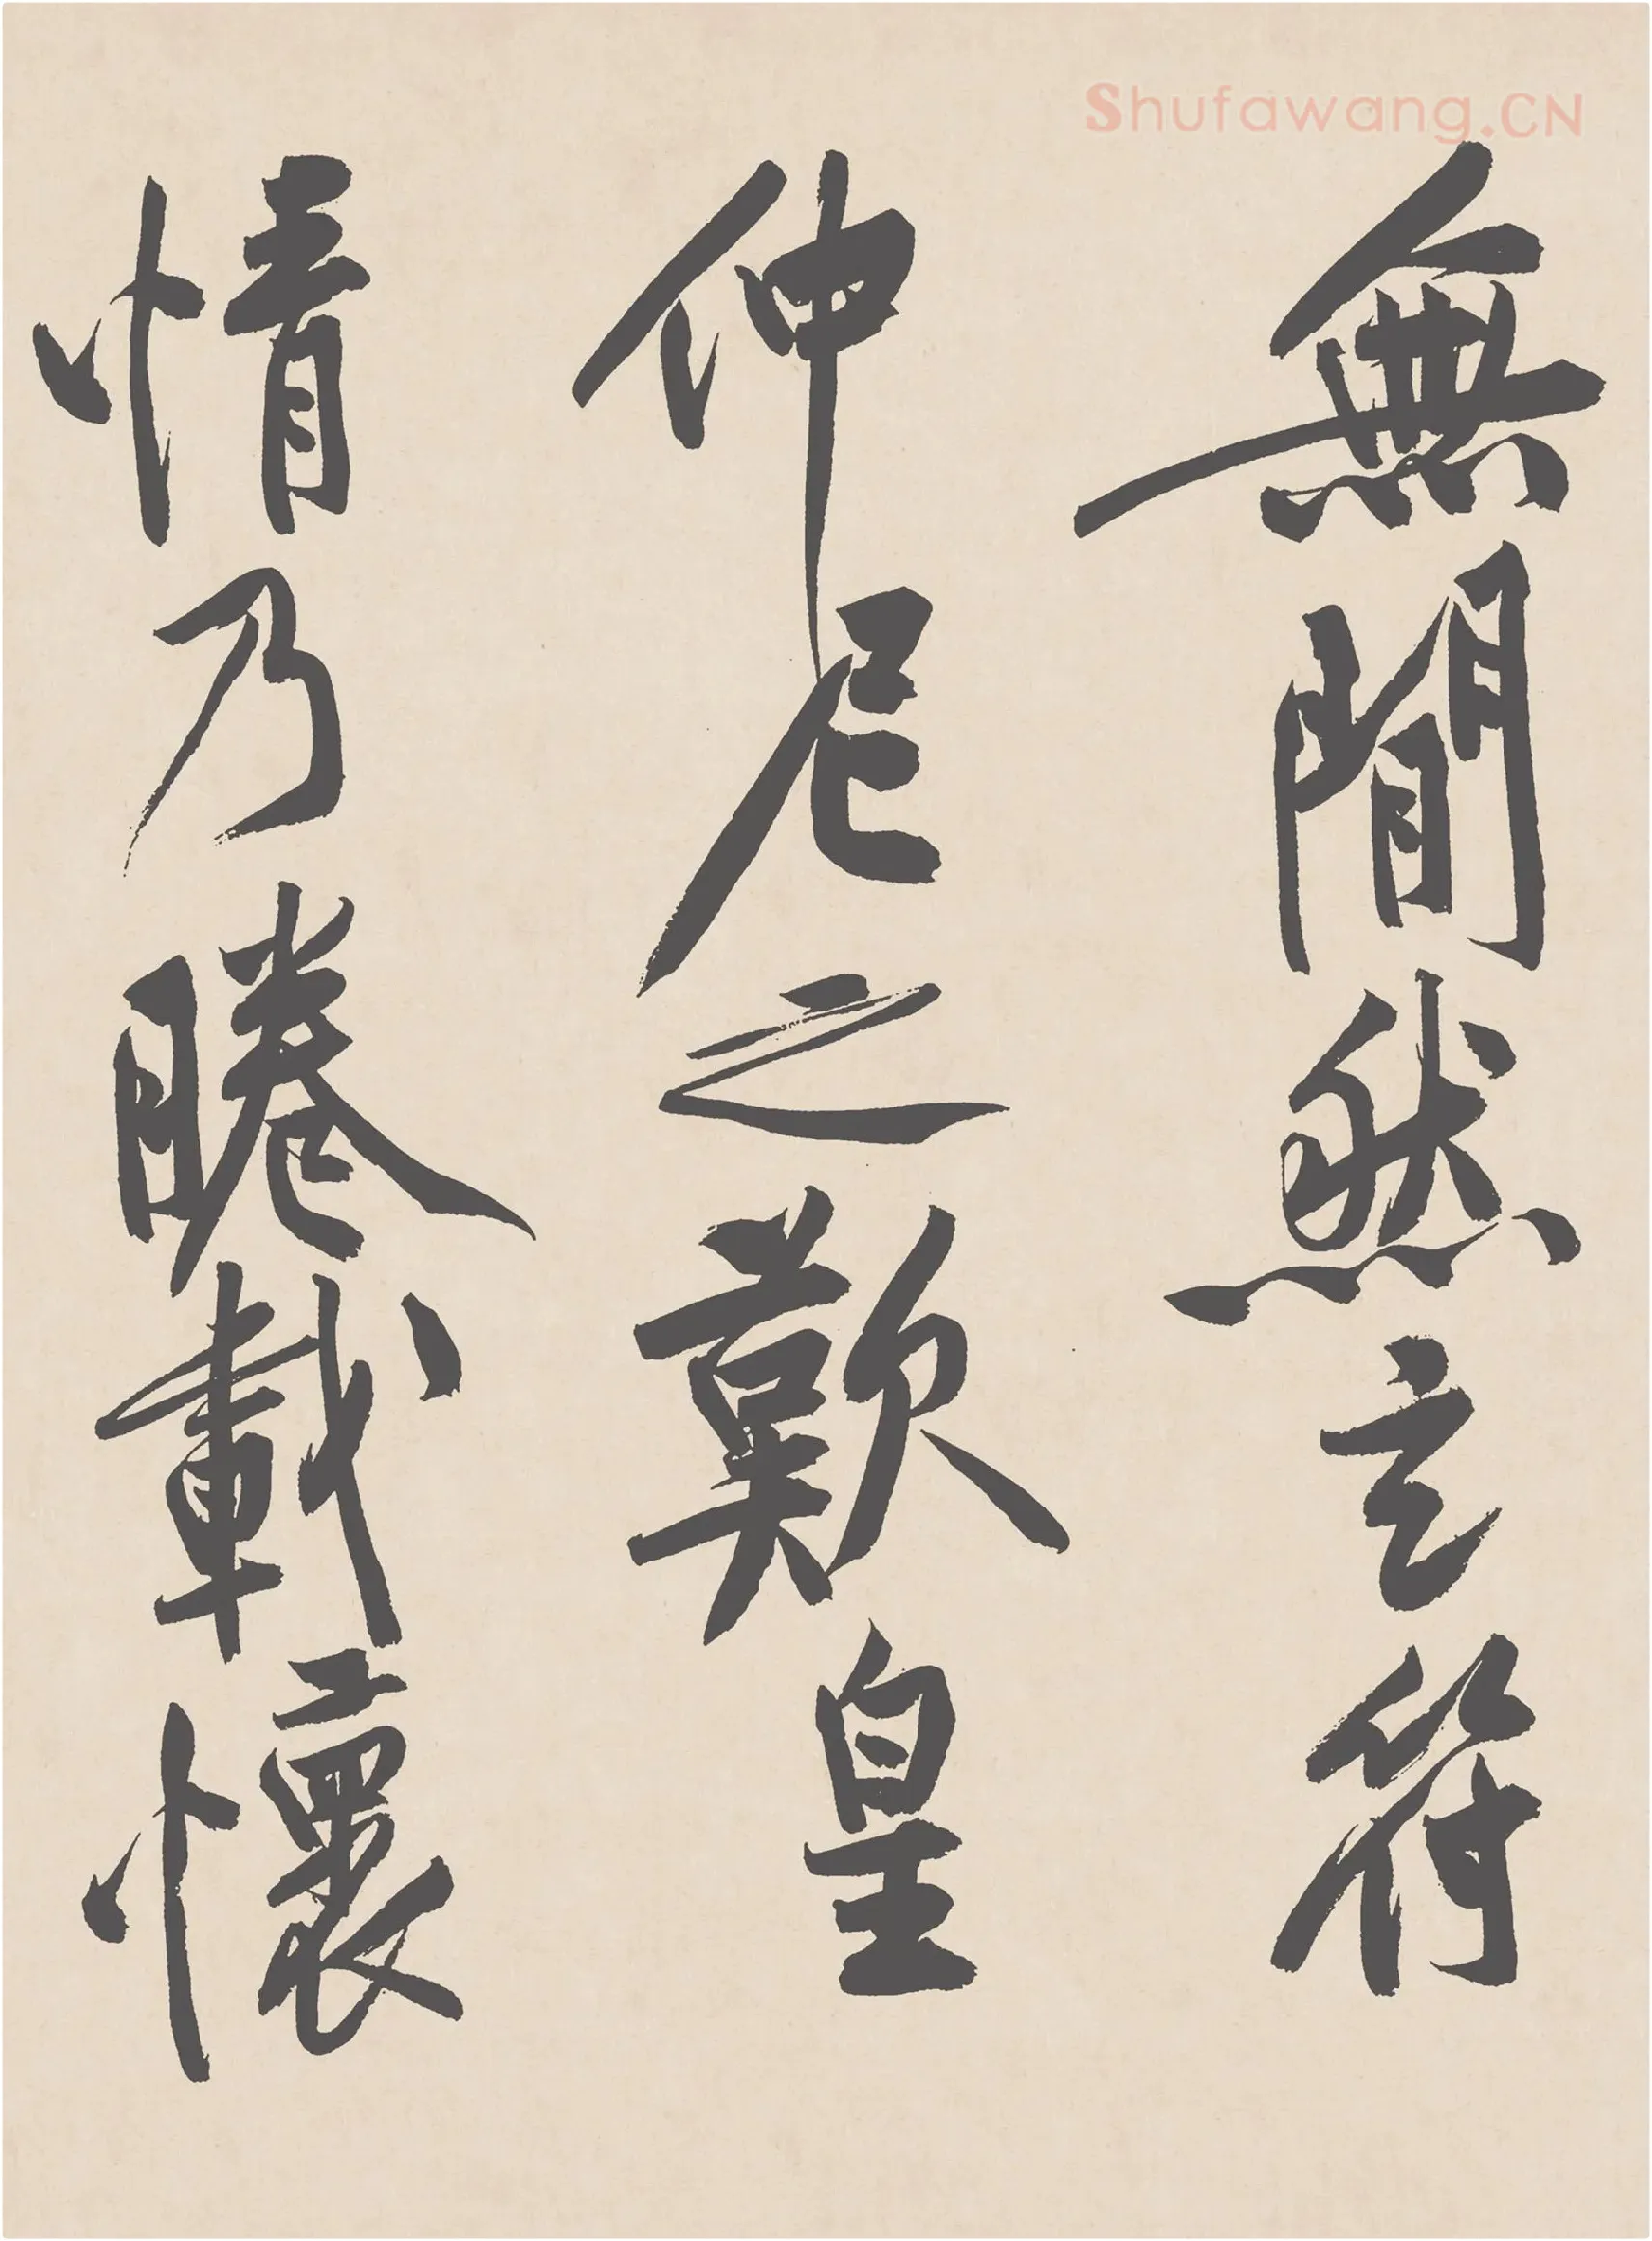 Shufawang.CN
無閒然玄符
仲尼之歎皇
情乃睠載懷